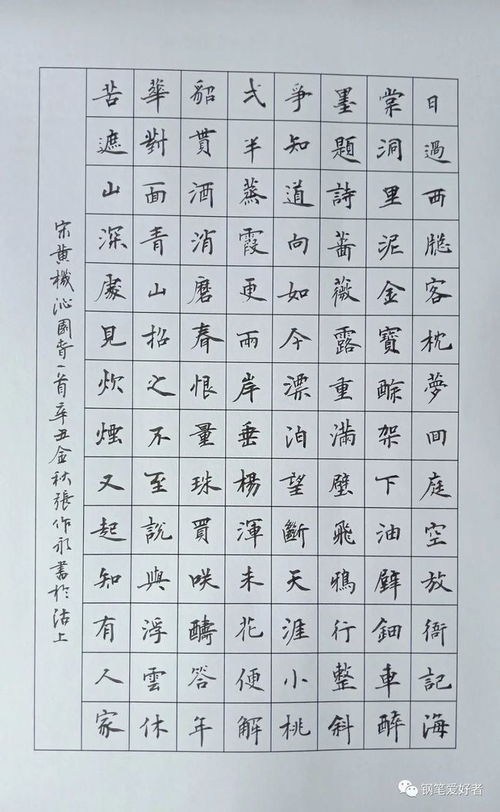 日過西牕客枕夢囬庭空放衙記海
棠洞里泥金寶酴架下油壁鈿車醉
墨題詩薔薇露重滿壁飛鴉行整斜
爭知道向如今漂泊望斷天涯小桃
弍半蒸霞更兩岸垂楊渾未花便解
貂貰酒消磨春恨量珠買咲醻答年
華對面青山招之不至說與浮雲休
苦遮山深處見炊煙又起知有人家
宋黃機沁園春一首辛丑金秋張作永書於沽上
钢笔爱好者